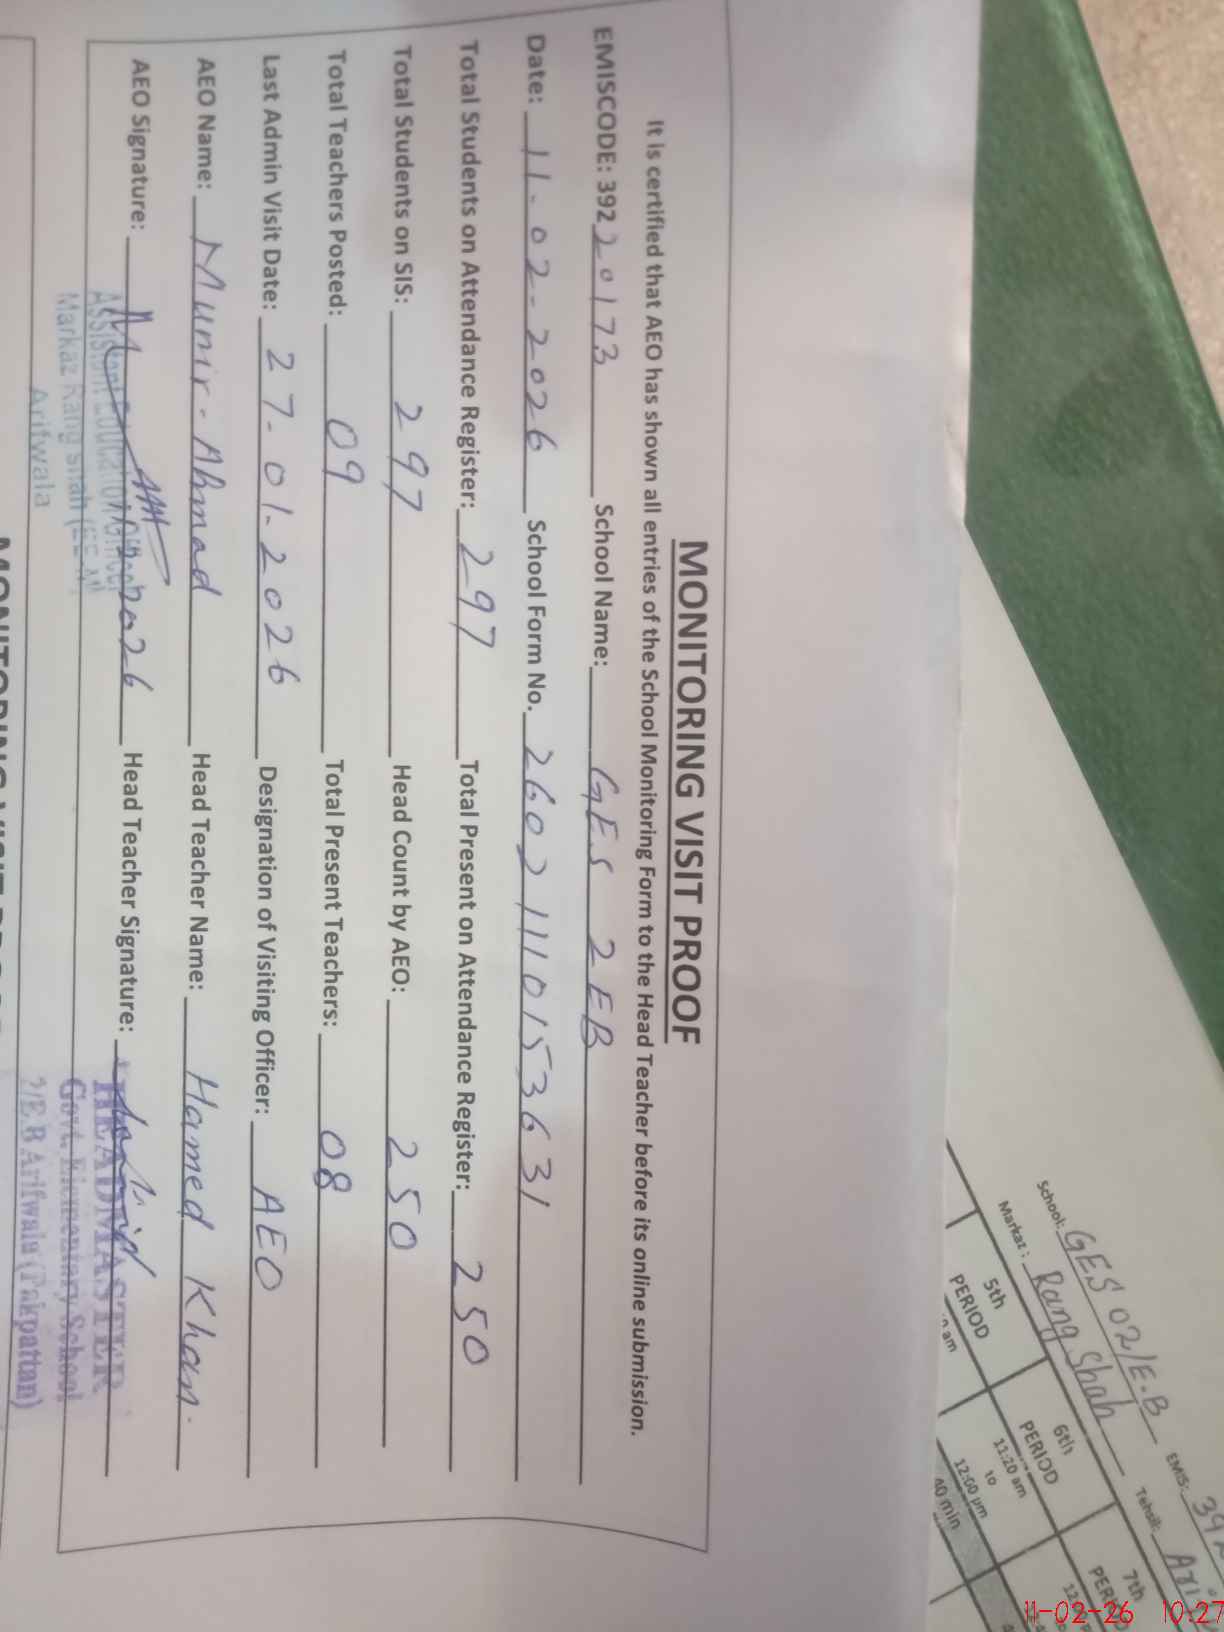 MONITORING VISIT PROOF
It is certified that AEO has shown all entries of the School Monitoring Form to the Head Teacher before its online submission.
EMISCODE: 39220173 School Name: GES 2EB
Date: 11-02-2026 School Form No. 26021110153631
Total Students on Attendance Register: 297 Total Present on Attendance Register: 250
Total Students on SIS: 297 Head Count by AEO: 250
Total Teachers Posted: 09 Total Present Teachers: 08
Last Admin Visit Date: 27-01-2026 Designation of Visiting Officer: AEO
AEO Name: Munir-Ahmad Head Teacher Name: Hamed Khan.
AEO Signature: Head Teacher Signature:
Assistant Education Officer
Markaz Rang Shah (EE-M)
Arifwala
HEADMASTER
Govt. Elementary School
2/E.B Arifwala (Pakpattan)
MONITORING VISIT
School: GES 02/E.B EMIS:
Markaz: Rang Shah Tehsil:
5th PERIOD
6th PERIOD
11:20 am
to
12:00 pm
40 min
7th
11-02-26 10:27